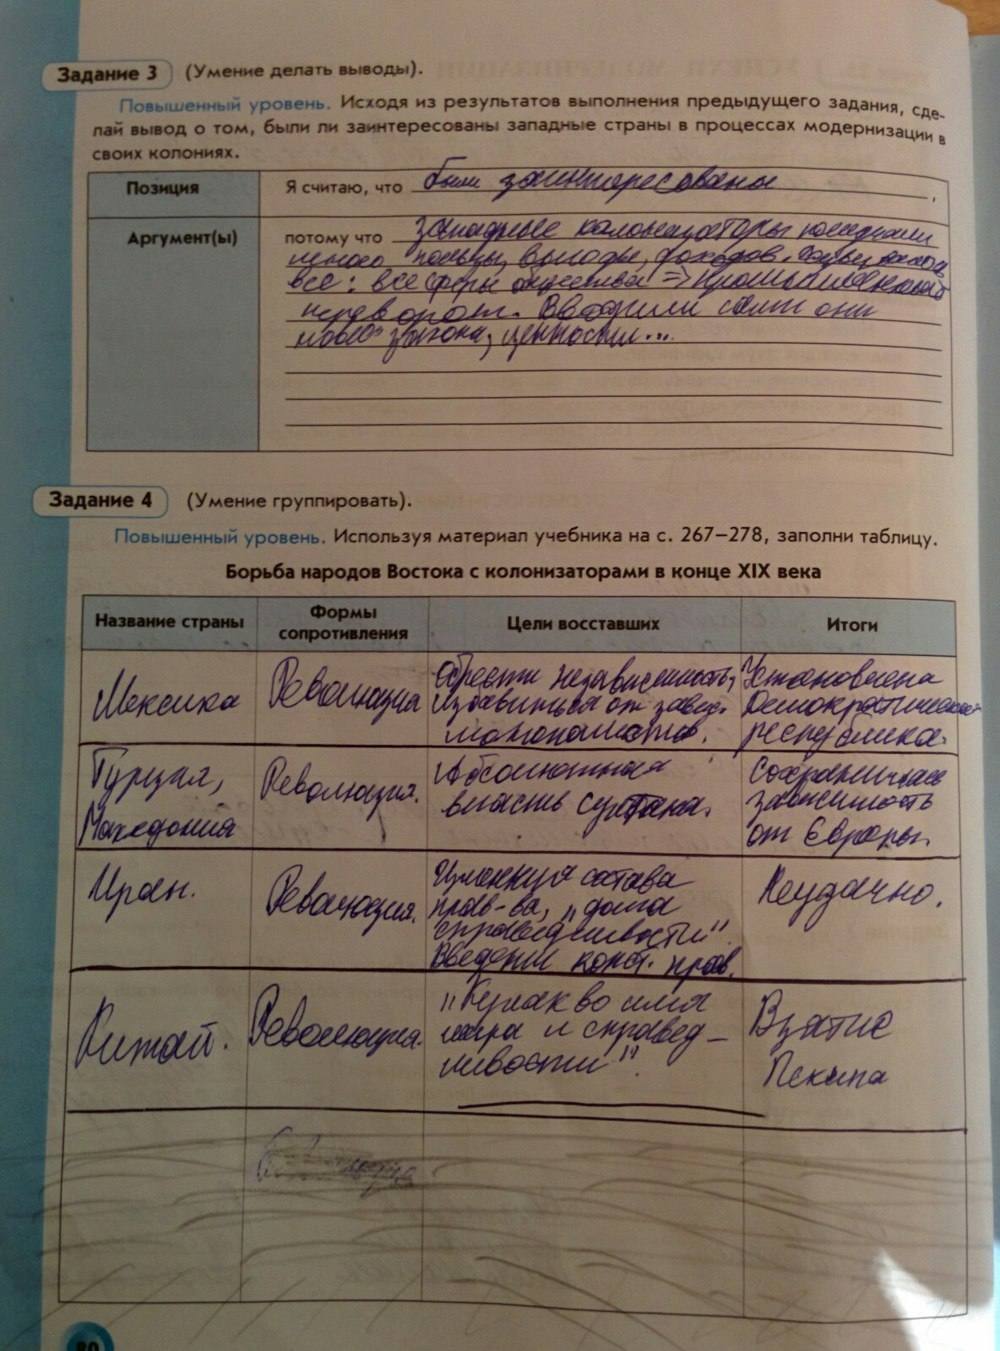 Задание 3 (Умение делать выводы).
Повышенный уровень. Исходя из результатов выполнения предыдущего задания, сде-
лай вывод о том, были ли заинтересованы западные страны в процессах модернизации в
своих колониях.
Позиция
Я считаю, что были заинтересованы ,
Аргумент(ы)
потому что западные колонизаторы
много пользы, выгоды, доходов.
все: все сферы общества => промышленный
переворот. Вводили сами они
новые закона, ценности...
Задание 4 (Умение группировать).
Повышенный уровень. Используя материал учебника на с. 267–278, заполни таблицу.
Борьба народов Востока с колонизаторами в конце XIX века
Название страны
Формы
сопротивления
Цели восставших
Итоги
Мексика
Революция
обрести независимость,
избавиться от
монополистов.
Установлена
Демократическая
республика.
Турция,
Македония
Революция.
Абсолютная
власть султана.
Сохранилась
зависимость
от Европы.
Иран.
Революция.
состава
прав-ва, "дома
справедливости"
Введение конст. прав.
Неудачно.
Китай.
Революция.
"Кулак во имя
мира и справед-
ливости".
Взятие
Пекина
80